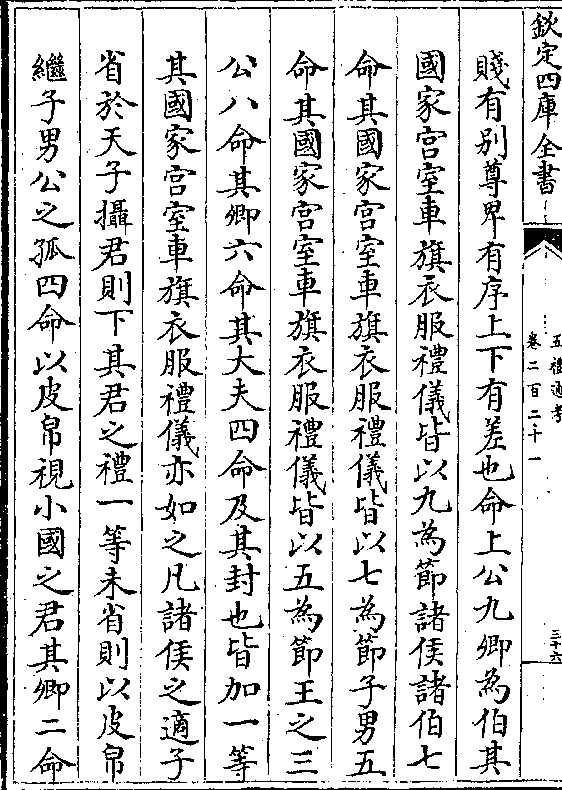 欽定四庫全書
五禮通考
卷二百二十一
三十六
賤有别尊卑有序上下有差也命上公九卿為伯其
國家宫室車旗衣服禮儀皆以九為節諸侯諸伯七
命其國家宫室車旗衣服禮儀皆以七為節子男五
命其國家宫室車旗衣服禮儀皆以五為節王之三
公八命其卿六命其大夫四命及其封也皆加一等
其國家宫室車旗衣服禮儀亦如之凡諸侯之適子
省於天子攝君則下其君之禮一等未省則以皮帛
繼子男公之孤四命以皮帛視小國之君其卿二命